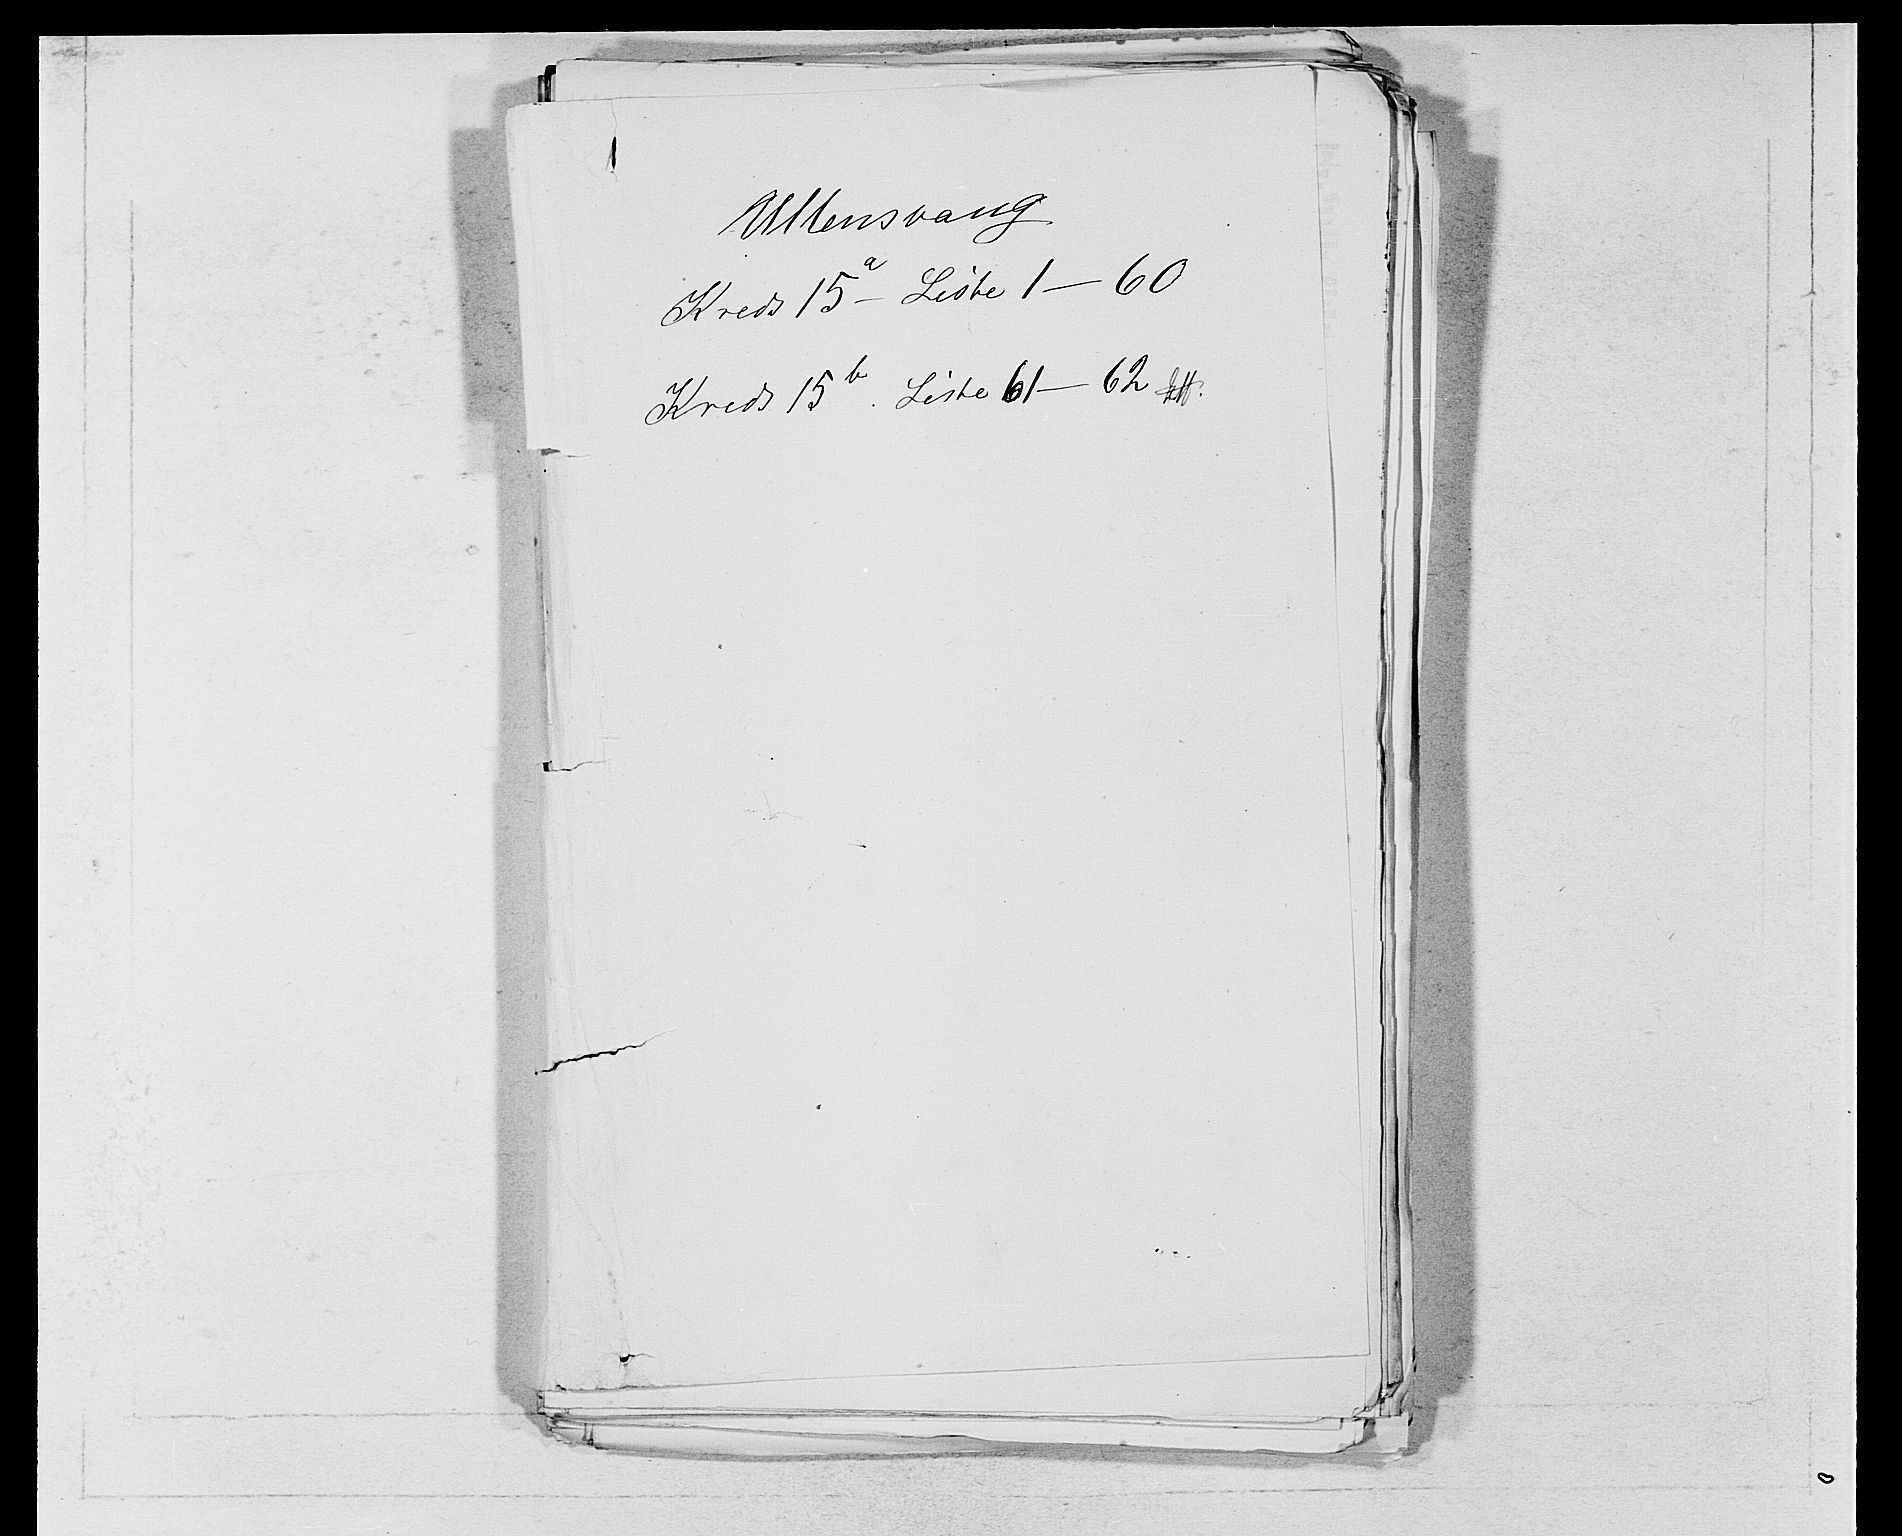 Ullensvang
Kreds 15ᵃ – Liste 1 – 60
Kreds 15ᵇ. Liste 61 – 62